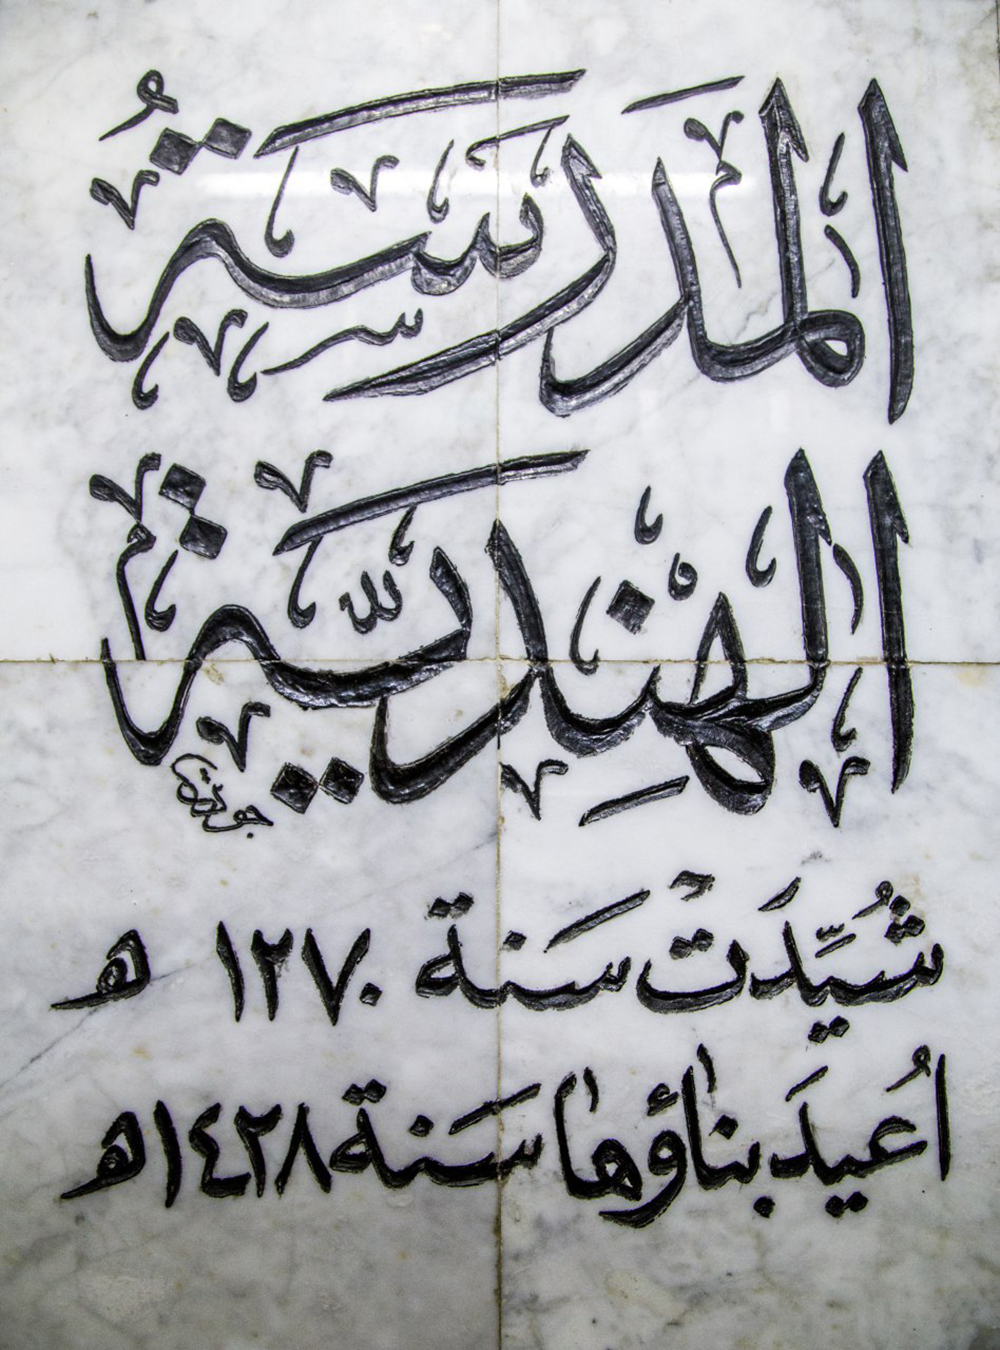 المَدرَسَةُ
الهِنديّةُ
شُيِّدَتْ سَنة ١٢٧٠ هـ
اُعيدَ بناؤها سَنة ١٤٢٨هـ